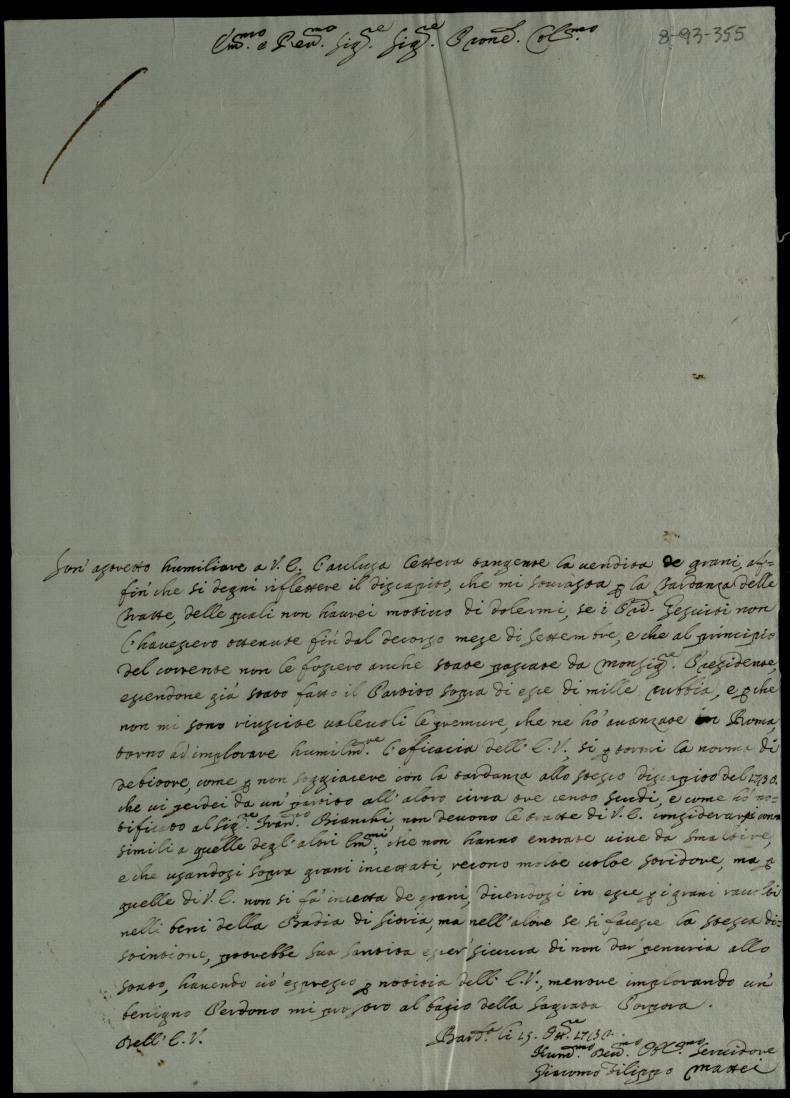 8-93-355
Em.mo e Rev.mo Sig.re Sig.re Prone. Col.mo
Son' astretto humiliare a V. E. l'acclusa lettera tangente la vendita de grani, af-
fin che si degni riflettere il discapito, che mi sourasta p la tardanza delle
tratte, delle quali non haurei motiuo di dolermi, se i Pad. Gesuiti non
l'hauessero ottenute fin' dal decorso mese di Settembre, e che al principio
del corrente non le fossero anche state passate da Monsig.re Presidente,
essendone già stato fatto il Partito sopra di esse di mille rubbia, e p che
non mi sono riuscite ualeuoli le premure, che ne hò auanzate in Roma,
torno ad implorare humilm.te l'efficacia dell' E. V., si p tormi la norma di
debitore, come p non soggiacere con la tardanza allo stesso discapito del 1730.
che ui perdei da un' partito all' altro circa tre cento scudi, e come hò no-
tificato al Sig.re Bianchi non deuono le tratte di V. E. considerarsi come
simili a quelle degl' altri Em.mi, che non hanno entrate uiue da smaltire,
e che usandosi sopra grani incettati, recono molte uolte , ma p
quelle di V. E. non si fà incetta de grani, diuendosi in esse p i grani raccolti
nelli beni della Badia di Sitria, ma nell' altre se si facesse la stessa di-
stintione, potrebbe sua Santità esser' sicura di non dar' penuria allo
stato, hauendo ciò espresso p notitia dell' E. V., mentre implorando un'
benigno Perdono mi prostro al bagio della Sagrata Porpora.
Dell' E. V.
li 15. 1730.
Hum.mo Deu.mo Obl.mo Seruidore
Giacomo Filippo Mattei